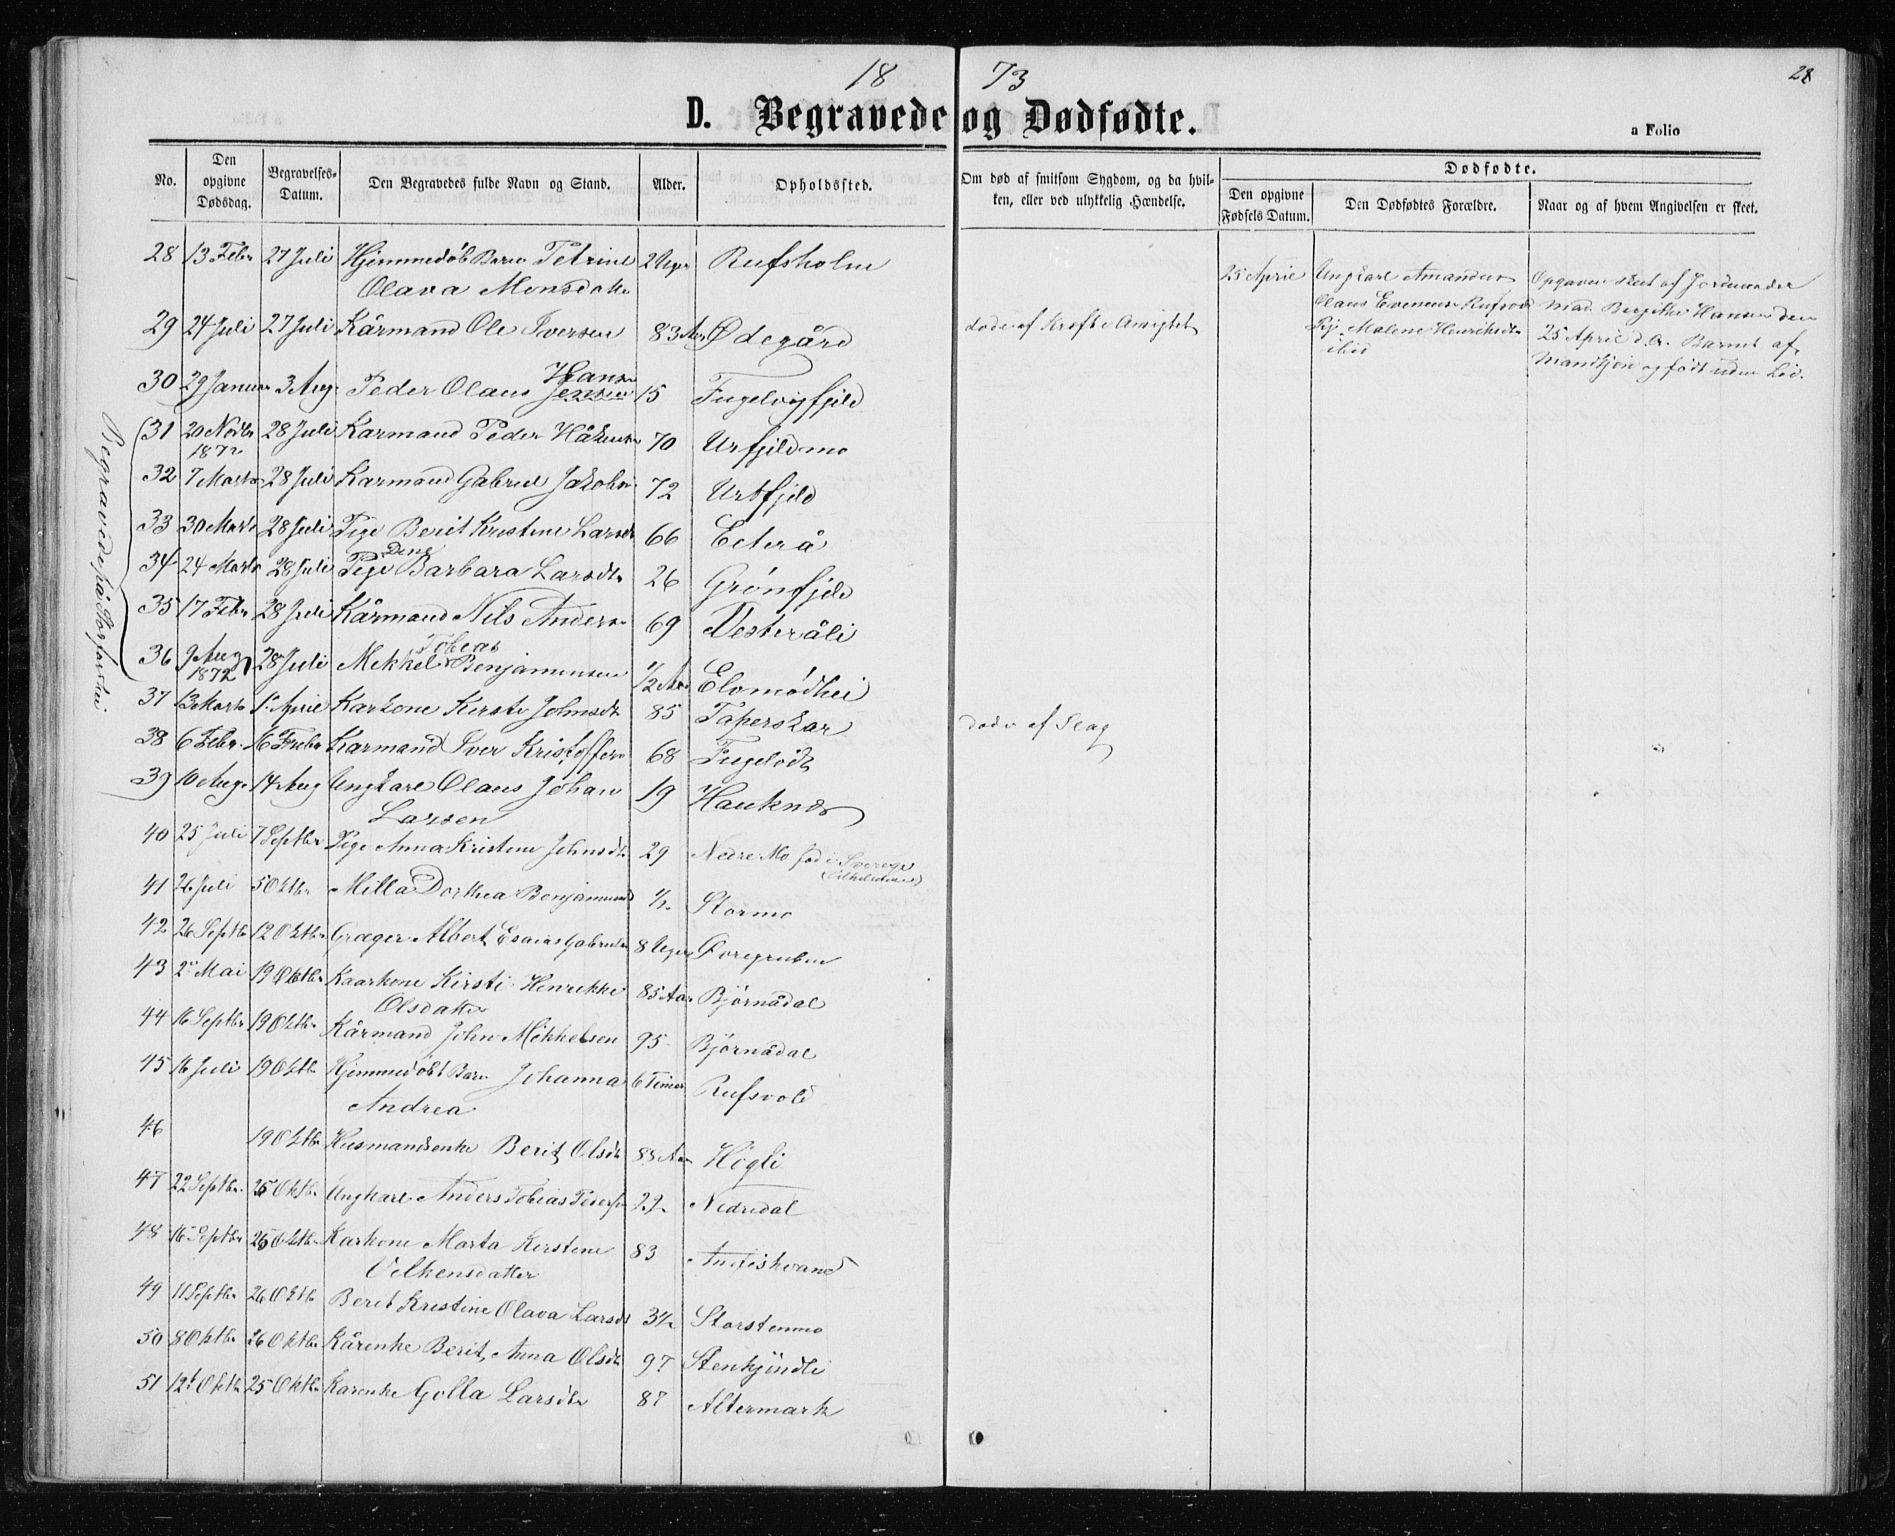 18 73
28
D. Begravede og Dødfødte.
a Folio
No.
Den opgivne Dødsdag.
Begravelses-Datum.
Den Begravedes fulde Navn og Stand.
Alder.
Opholdssted.
Om død af smitsom Sygdom, og da hvilken, eller ved ulykkelig Hændelse.
Dødfødte.
Den opgivne Fødsels Datum.
Den Dødfødtes Forældre.
Naar og af hvem Angivelsen er skeet.
28 13 Febr 27 Juli Hjemmedøb Barn Petrine 2 Uger Rufsholm
Olava Monsdatter
25 April Ungkarl Amandus
Olaus Evensen Rufsvold
Pig. Malene Henriksdtr
ibid
Opgaven skeet af Jordemoder
Mad. Bergithe Hansen den
25 April d.A. Barnet af
Mandkjøn og født uden Liv.
29 24 Juli 27 Juli Kårmand Ole Iversen 83 Aar Ødegård døde af Kræft i Ansigtet
30 29 Januar 3 Aug. Peder Olaus Jensen 15 Fugelvigfjeld
Hansen
31 20 Novbr 28 Juli Karmand Peder Håkens 70 Urfjeldmo
1872
32 7 Marts 28 Juli Karmand Gabriel Jakobs 72 Urtfjeld
33 30 Marts 28 Juli Pige Berit Kristine Larsdt 66 Eiterå
34 24 Marts 28 Juli Pige Barbara Larsdtr 26 Grönfjeld
35 17 Febr 28 Juli Kårmand Nils Anders 69 Vesteråli
Tobias
36 9 Aug 28 Juli Mekkel Benjaminsen 1/2 Aar Elvmødhei
1872
Begravede på Storforshei
37 13 Marts 1 April Karkone Kirsti Johnsdt 85 Täperskar døde af Slag
38 6 Febr. 16 Febr Karmand Iver Kristoffers 68 Fugelødt
39 10 Aug. 14 Aug Ungkarl Olaus Johan 19 Hauknes
Larsen
40 25 Juli 7 Septbr Pige Anna Kristine Johnsdtr 29 Nedre Mo fød i Sverige
41 26 Juli 5 Oktbr Milla Dorthea Benjaminsd 1/2 Stormo
42 26 Septbr 12 Oktbr Græger Albert Esaias Gabriels 8 Uger Toregruben
43 2 Mai 19 Oktbr Kaarkone Kirsti Henrikke 85 Aar Björnådal
Olsdatter
44 16 Septbr 19 Oktbr Kårmand John Mikkelsen 95 Björnådal
45 16 Juli 19 Oktbr Hjemmedøbt Barn Johanna 6 Timer Rufsvold
Andrea
46 19 Oktbr Husmandsenke Berit Olsdt 88 Aar Högli
47 22 Septbr. 25 Oktbr Ungkarl Anders Tobias Peders 22 Nedredal
48 16 Septbr 26 Oktbr Karkone Marta Kerstine 83 Andfiskvand
Velkensdatter
49 11 Septbr 26 Oktbr Berit Kristine Olava Larsdt 3 1/2 Storstenmo
50 8 Oktbr 26 Oktbr Kårenke Berit Anna Olsdtr 97 Stenkjindli
51 12 Oktbr 25 Oktbr Karenke Golla Larsdtr 87 Altermark